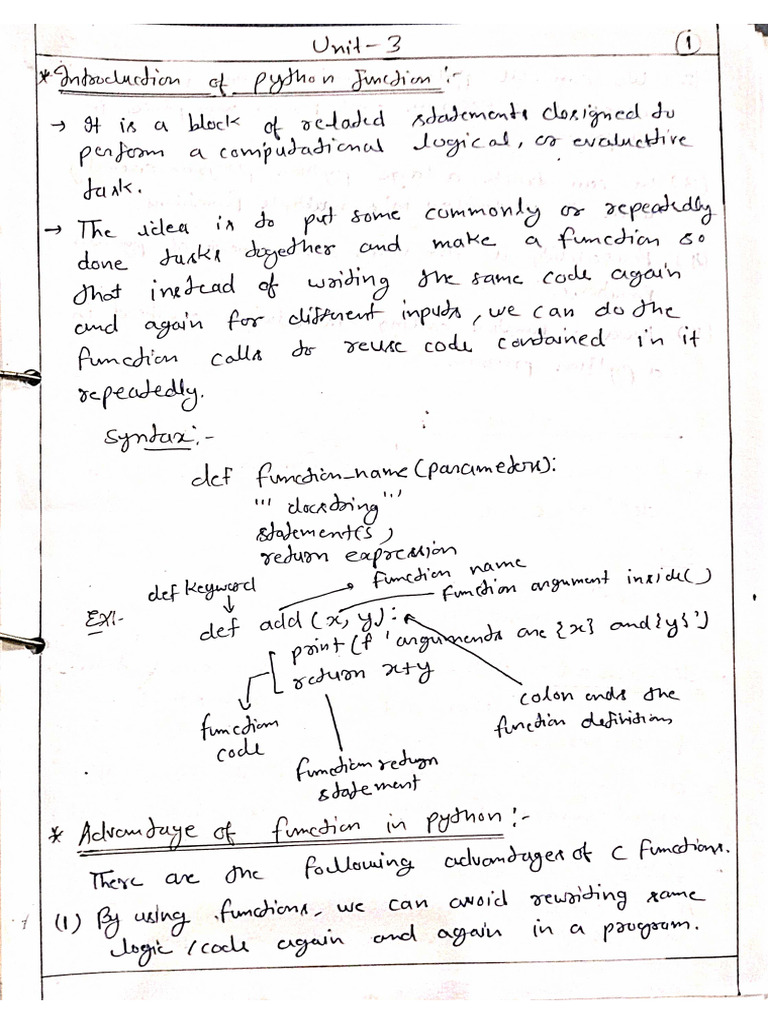 Unit-3
1
* Introduction of python function :-
→ It is a block of related statements designed to
perform a computational logical, or evaluative
task.
→ The idea is to put some commonly or repeatedly
done tasks together and make a function so
that instead of writing the same code again
and again for different inputs, we can do the
function calls to reuse code contained in it
repeatedly.
Syntax:-
def function_name (parameters):
''' docstring '''
statement(s)
return expression
def keyword
function name
function argument inside ( )
Ex:-
def add (x, y):
print (f 'arguments are {x} and {y}')
return x+y
colon ends the
function definition
function
code
function return
statement
* Advantage of function in python :-
There are the following advantages of C functions.
(1) By using functions, we can avoid rewriting same
logic / code again and again in a program.